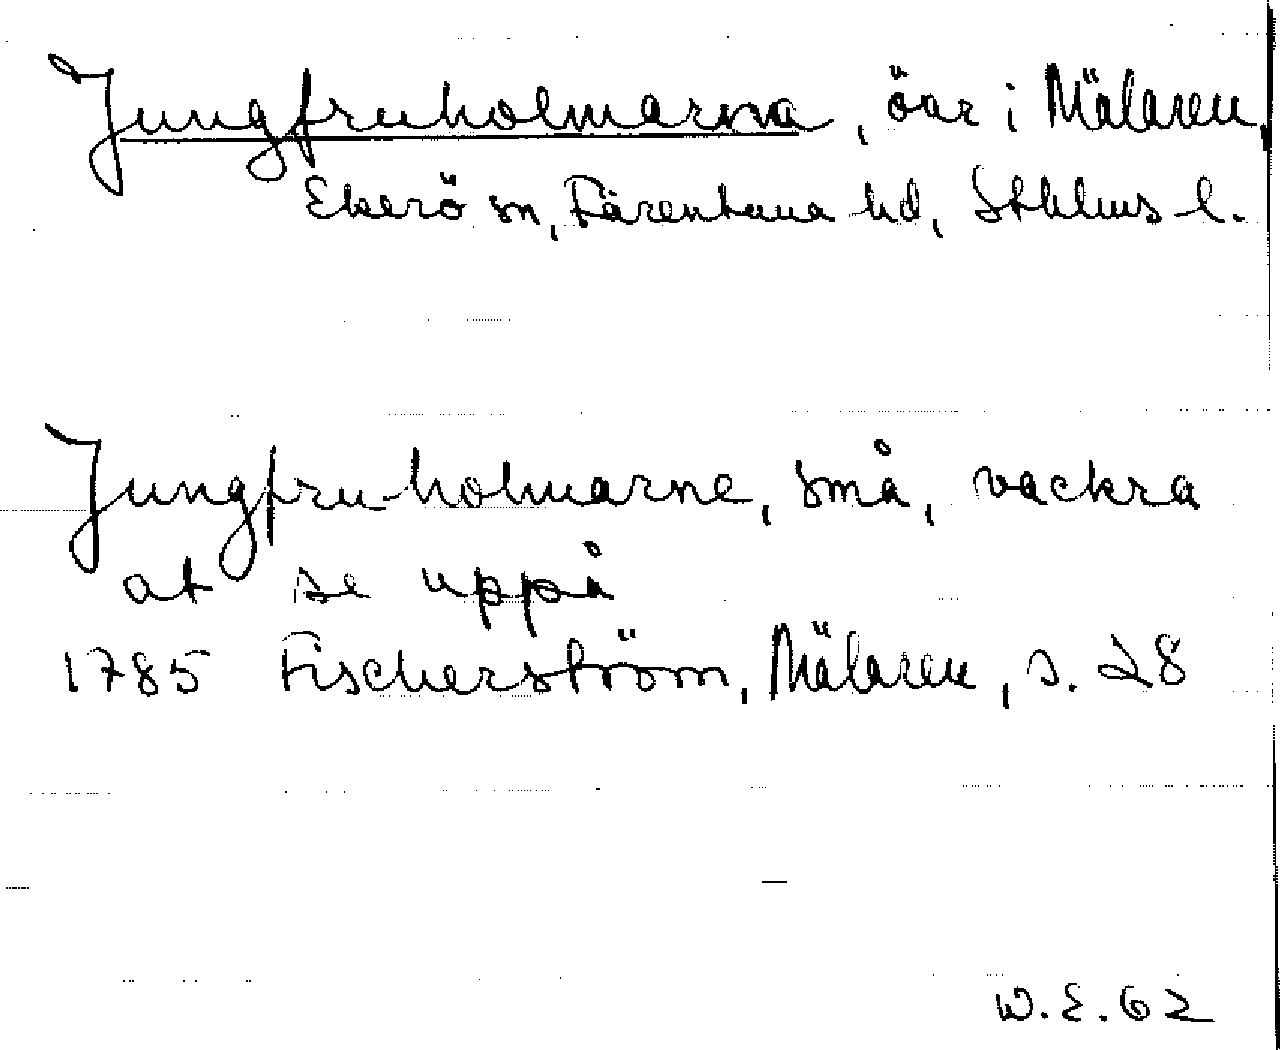 Jungfruholmarna, öar i Mälaren,
Ekerö sn, Färentuna hd, Sthlms l.
Jungfru-holmarne, små, vackra
at se uppå
1785 Fischerström, Mälaren, s. 28
W.E. 62